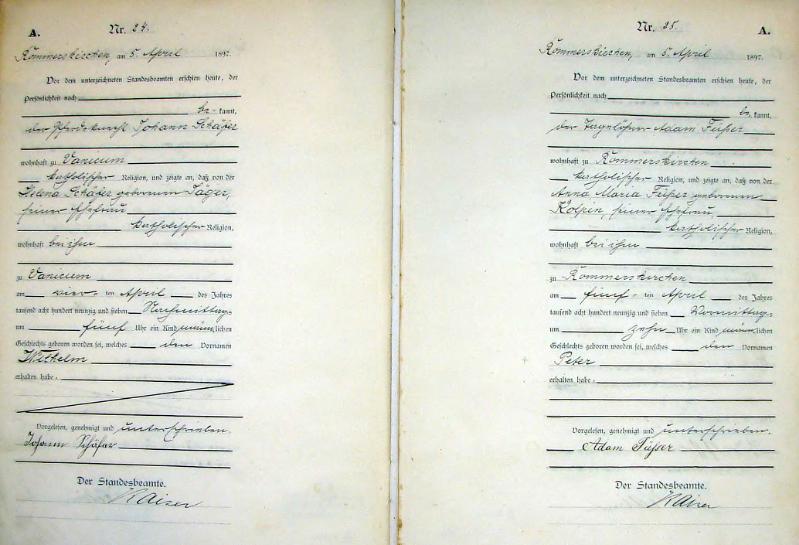 A.
Nr. 24.
Rommerskirchen, am 5. April 1897.
Vor dem unterzeichneten Standesbeamten erschien heute, der
Persönlichkeit nach
be-kannt,
der Pferdeknecht Johann Schäfer
wohnhaft zu Vanikum
katholischer Religion, und zeigte an, daß von der
Helena Schäfer geborenen Jäger,
seiner Ehefrau
katholischer Religion,
wohnhaft bei ihm
zu Vanikum
am vier-ten April des Jahres
tausend acht hundert neunzig und sieben Nachmittags
um fünf Uhr ein Kind männlichen
Geschlechts geboren worden sei, welches den Vornamen
Wilhelm
erhalten habe.
Vorgelesen, genehmigt und unterschrieben.
Johann Schäfer
Der Standesbeamte.
Kaiser
Nr. 25.
A.
Rommerskirchen, am 5. April 1897.
Vor dem unterzeichneten Standesbeamten erschien heute, der
Persönlichkeit nach
be kannt,
der Tagelöhner Adam Füßer
wohnhaft zu Rommerskirchen
katholischer Religion, und zeigte an, daß von der
Anna Maria Füßer geborenen
Kolpin, seiner Ehefrau
katholischer Religion,
wohnhaft bei ihm
zu Rommerskirchen
am fünf-ten April des Jahres
tausend acht hundert neunzig und sieben Vormittags
um zehn Uhr ein Kind männlichen
Geschlechts geboren worden sei, welches den Vornamen
Peter
erhalten habe.
Vorgelesen, genehmigt und unterschrieben.
Adam Füßer
Der Standesbeamte.
Kaiser